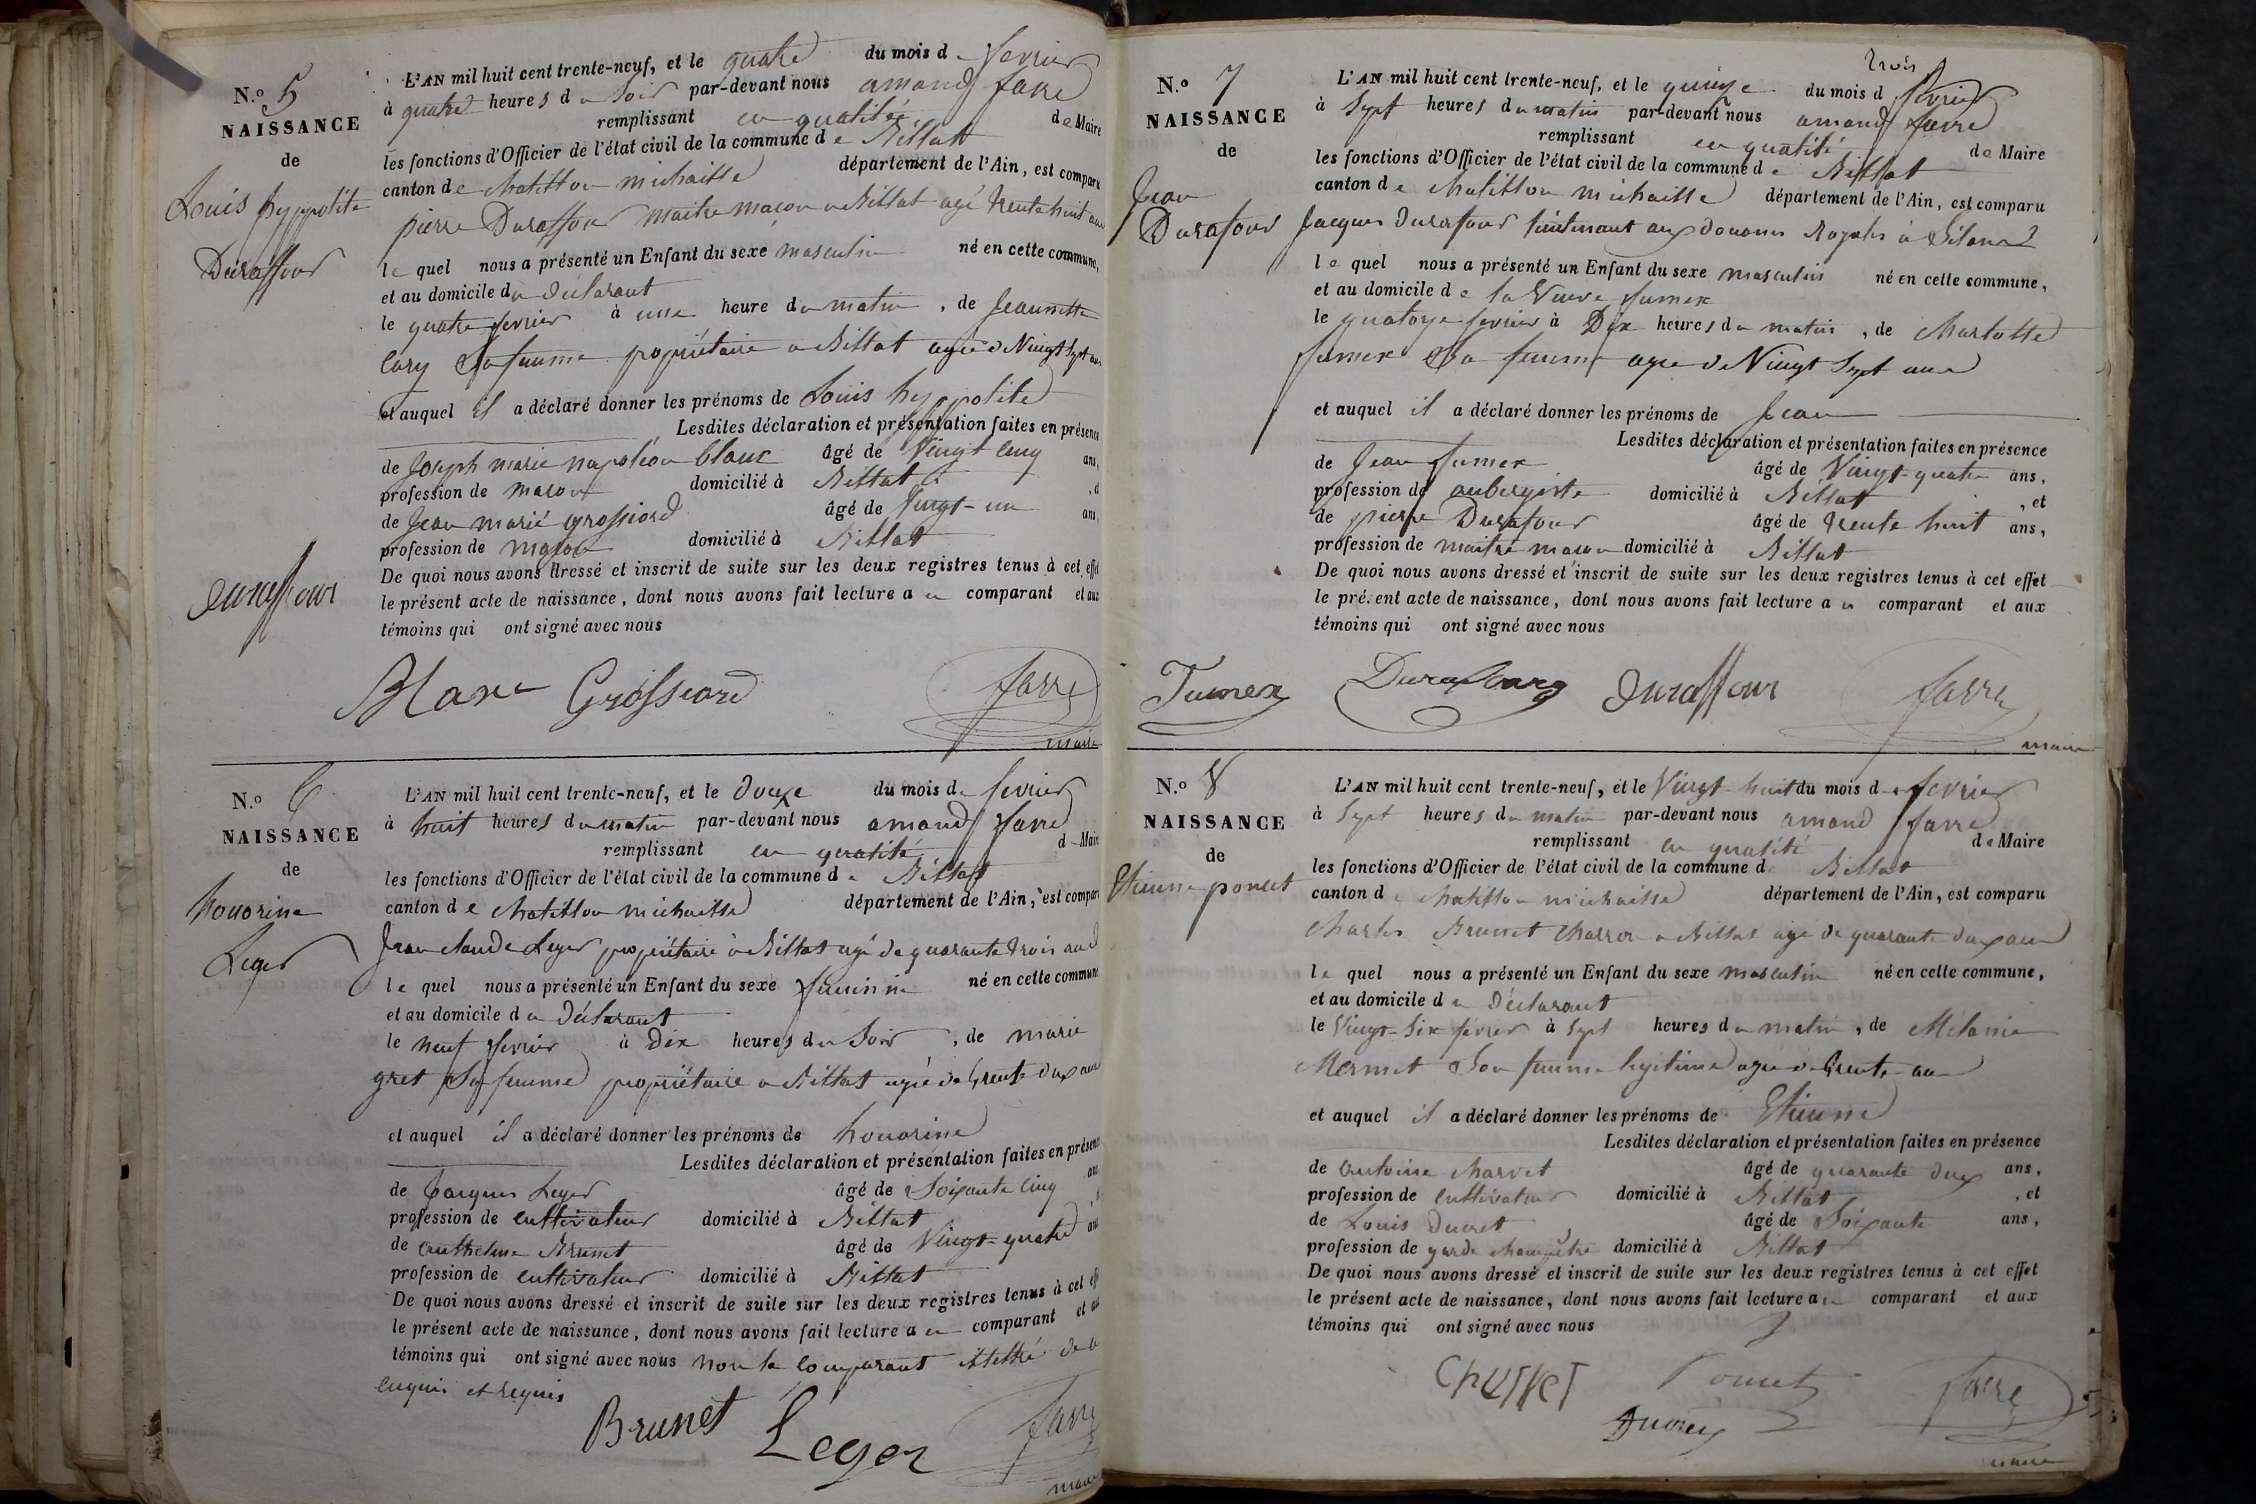 N.o 5
NAISSANCE
de
Louis hyppolite
Duraffour
L'AN mil huit cent trente-neuf, et le quatre du mois de fevrier
à quatre heures du Soir par-devant nous amand favre
remplissant en qualité de Maire
les fonctions d'Officier de l'état civil de la commune de Billiat
canton de chatillon michaille département de l'Ain, est comparu
pierre Duraffour maitre maçon a Billiat agé trente huit ans
le quel nous a présenté un Enfant du sexe masculin né en cette commune,
et au domicile du déclarant
le quatre fevrier à une heure du matin, de Jeannette
Cary Sa femme propriétaire a Billiat agée de Vingt Sept ans
et auquel il a déclaré donner les prénoms de Louis hyppolite
Lesdites déclaration et présentation faites en présence
de Joseph marie napoléon blanc âgé de Vingt Cinq ans,
profession de maçon domicilié à Billiat
de Jean marie grossiord âgé de Vingt-un ans
profession de maçon domicilié à Billiat
De quoi nous avons dressé et inscrit de suite sur les deux registres tenus à cet effet
le présent acte de naissance, dont nous avons fait lecture au comparant et aux
témoins qui ont signé avec nous
duraffour
Blanc Grossiord favre
maire
N.o 6
NAISSANCE
de
honorine
Leger
L'AN mil huit cent trente-neuf, et le douze du mois de fevrier
à huit heures du matin par-devant nous amand favre
remplissant en qualité de Maire
les fonctions d'Officier de l'état civil de la commune de Billiat
canton de chatillon michaille département de l'Ain, est comparu
Jean claude Leger propriétaire a Billiat agé de quarante trois ans
le quel nous a présenté un Enfant du sexe féminin né en cette commune
et au domicile du Déclarant
le neuf fevrier à dix heures du Soir, de marie
gret Sa femme propriétaire a Billiat agée de trente deux ans
et auquel il a déclaré donner les prénoms de honorine
Lesdites déclaration et présentation faites en présence
de Jacques Leger âgé de Soixante Cinq ans
profession de cultivateur domicilié à Billiat
de anthelme Brunet âgé de Vingt-quatre ans
profession de cultivateur domicilié à Billiat
De quoi nous avons dressé et inscrit de suite sur les deux registres tenus à cet effet
le présent acte de naissance, dont nous avons fait lecture au comparant et aux
témoins qui ont signé avec nous non le comparant illettré de ce
enquis et requis
Brunet Léger favre
maire
N.o 7
NAISSANCE
de
Jean
Durafour
trois
L'AN mil huit cent trente-neuf, et le quinze du mois de fevrier
à Sept heures du matin par-devant nous amand favre
remplissant en qualité de Maire
les fonctions d'Officier de l'état civil de la commune de Billiat
canton de chatillon michaille département de l'Ain, est comparu
Jacques durafour lieutenant aux douanes Royales à
le quel nous a présenté un Enfant du sexe masculin né en cette commune,
et au domicile de la Veuve fumex
le quatorze fevrier à Dix heures du matin, de Charlotte
fumex Sa femme agée de Vingt Sept ans
et auquel il a déclaré donner les prénoms de Jean
Lesdites déclaration et présentation faites en présence
de Jean fumex âgé de Vingt-quatre ans,
profession de aubergiste domicilié à Billiat, et
de pierre Durafour âgé de trente huit ans,
profession de maitre maçon domicilié à Billiat
De quoi nous avons dressé et inscrit de suite sur les deux registres tenus à cet effet
le présent acte de naissance, dont nous avons fait lecture au comparant et aux
témoins qui ont signé avec nous
Fumex Durafourg duraffour favre
maire
N.o 8
NAISSANCE
de
Etienne poncet
L'AN mil huit cent trente-neuf, et le Vingt-huit du mois de fevrier
à Sept heures du matin par-devant nous amand favre
remplissant en qualité de Maire
les fonctions d'Officier de l'état civil de la commune d Billiat
canton de chatillon michaille département de l'Ain, est comparu
Charles Brunet charron a Billiat agé de quarante deux ans
le quel nous a présenté un Enfant du sexe masculin né en cette commune,
et au domicile du Déclarant
le Vingt-Six février à Sept heures du matin, de Mélanie
Mermet Son femme légitime agée de trente ans
et auquel il a déclaré donner les prénoms de Etienne
Lesdites déclaration et présentation faites en présence
de antoine charvet âgé de quarante deux ans,
profession de cultivateur domicilié à Billiat, et
de Louis ducret âgé de Soixante ans,
profession de garde champêtre domicilié à Billiat
De quoi nous avons dressé et inscrit de suite sur les deux registres tenus à cet effet
le présent acte de naissance, dont nous avons fait lecture au comparant et aux
témoins qui ont signé avec nous
Poncet favre
maire